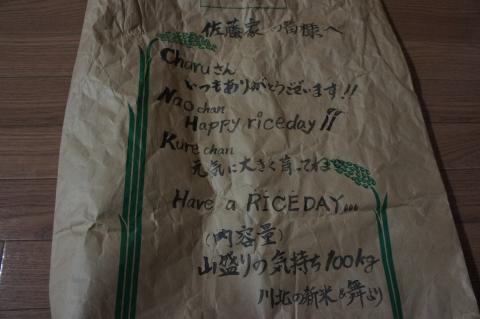 佐藤家の皆様へ
Charuさん
いつもありがとうございます!!
Nao chan
Happy riceday!!
Kure chan
元気に大きく育ってねまっ
Have a RICEDAY...
(内容量)
山盛りの気持ち100kg
川北の新米&舞より